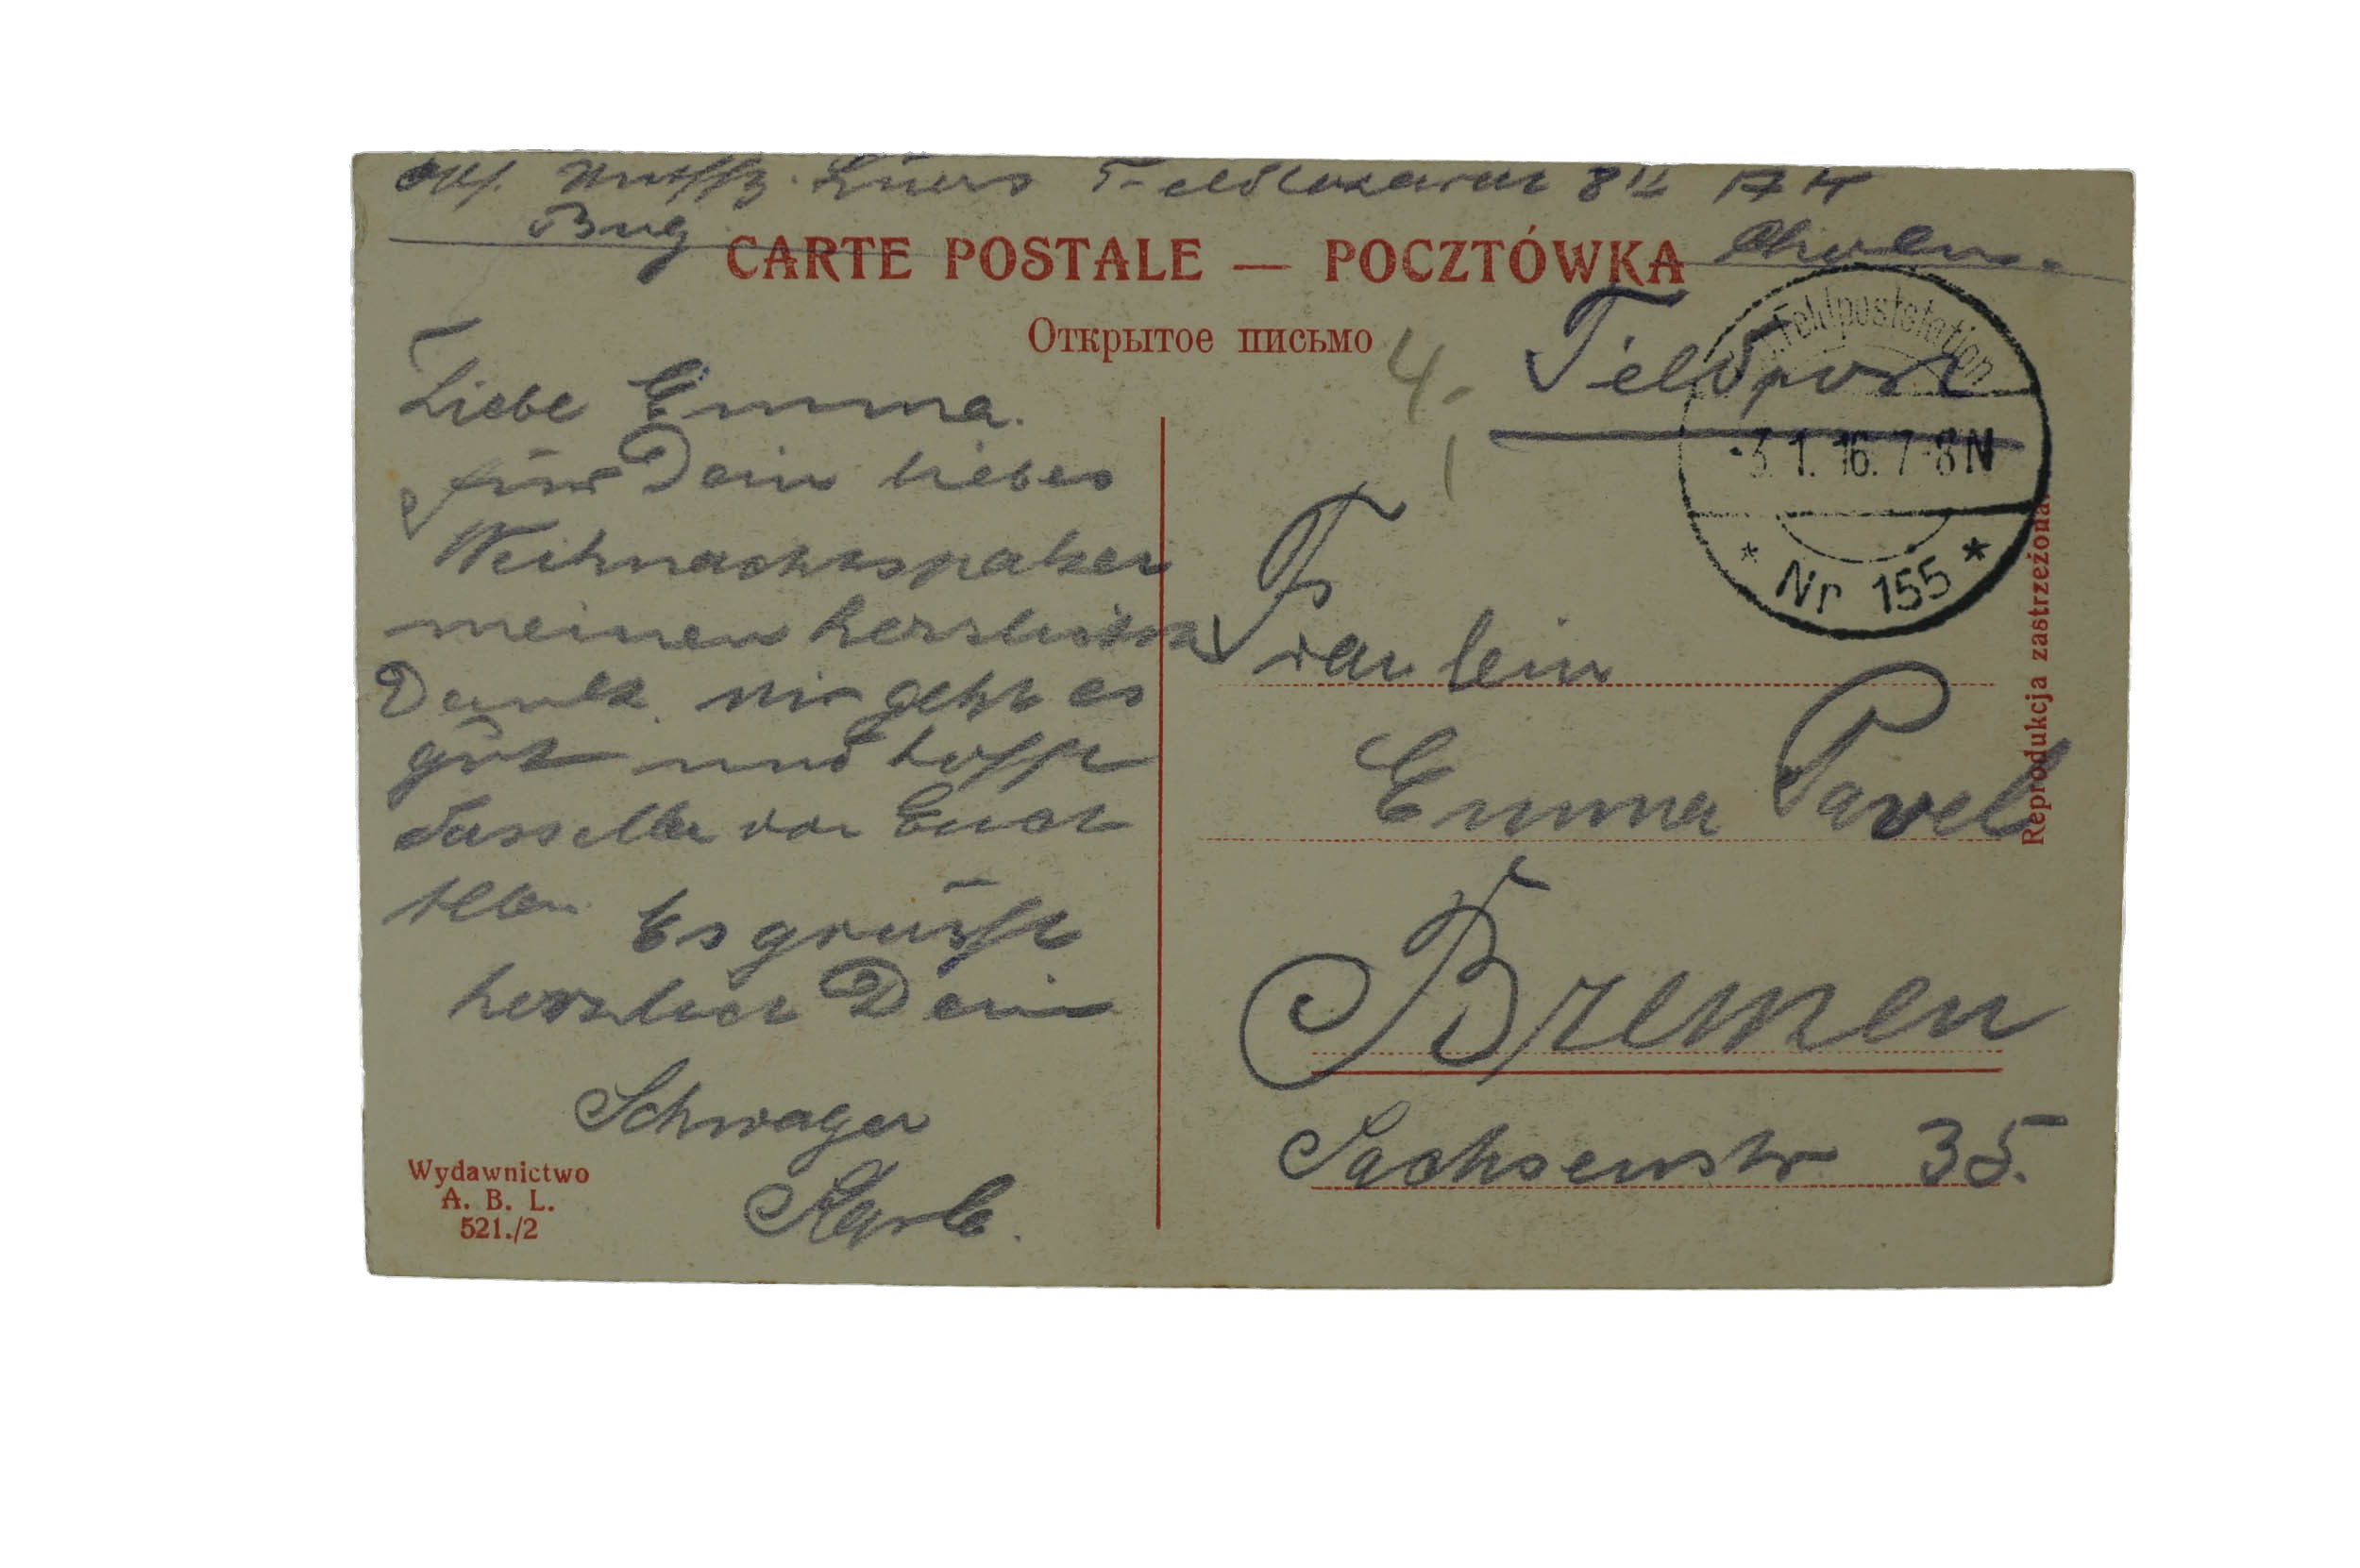 Lüers Feldlazarett 8
Bug
Cholm.
CARTE POSTALE — POCZTÓWKA
Открытое письмо
4,-
Feldpost
Feldpoststation
-3.1.16. 7-8 N
* Nr 155 *
Liebe Emma.
für Dein liebes
Weihnachtspaket
meinen herzlichen
Dank. Mir geht es
gut und hoffe
dasselbe von Euch
Allen. Es grüßt
herzlich Dein
Schwager
Karl.
Fräulein
Emma Pavel
Bremen
Sachsenstr 35.
Wydawnictwo
A. B. L.
521./2
Reprodukcja zastrzeżona.